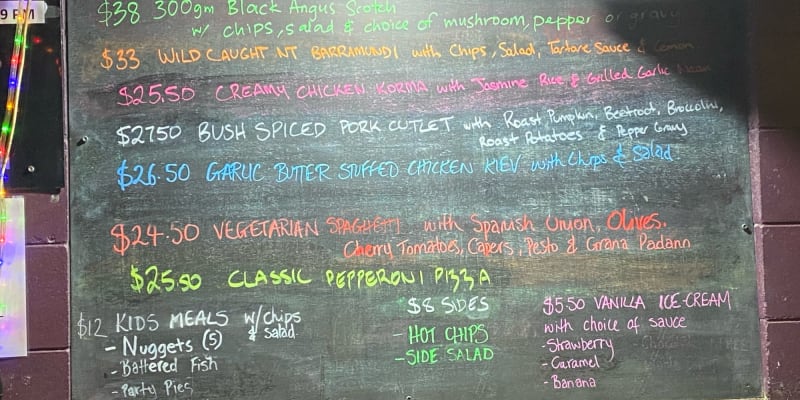 9 PM
$38 300gm Black Angus Scotch
w/ chips, salad & choice of mushroom, pepper or gravy
$33 WILD CAUGHT NT BARRAMUNDI with Chips, Salad, Tartare Sauce & Lemon
$25.50 CREAMY CHICKEN KORMA with Jasmine Rice & Grilled Garlic Naan
$27.50 BUSH SPICED PORK CUTLET with Roast Pumpkin, Beetroot, Broccolini,
Roast Potatoes & Pepper Gravy
$26.50 GARLIC BUTTER STUFFED CHICKEN KIEV with Chips & Salad
$24.50 VEGETARIAN SPAGHETTI with Spanish Onion, Olives,
Cherry Tomatoes, Capers, Pesto & Grana Padann
$25.50 CLASSIC PEPPERONI PIZZA
$12 KIDS MEALS w/chips
& salad
- Nuggets (5)
- Battered Fish
- Party Pies
$8 SIDES
- HOT CHIPS
- SIDE SALAD
$5.50 VANILLA ICE-CREAM
with choice of sauce
- Strawberry
- Caramel
- Banana